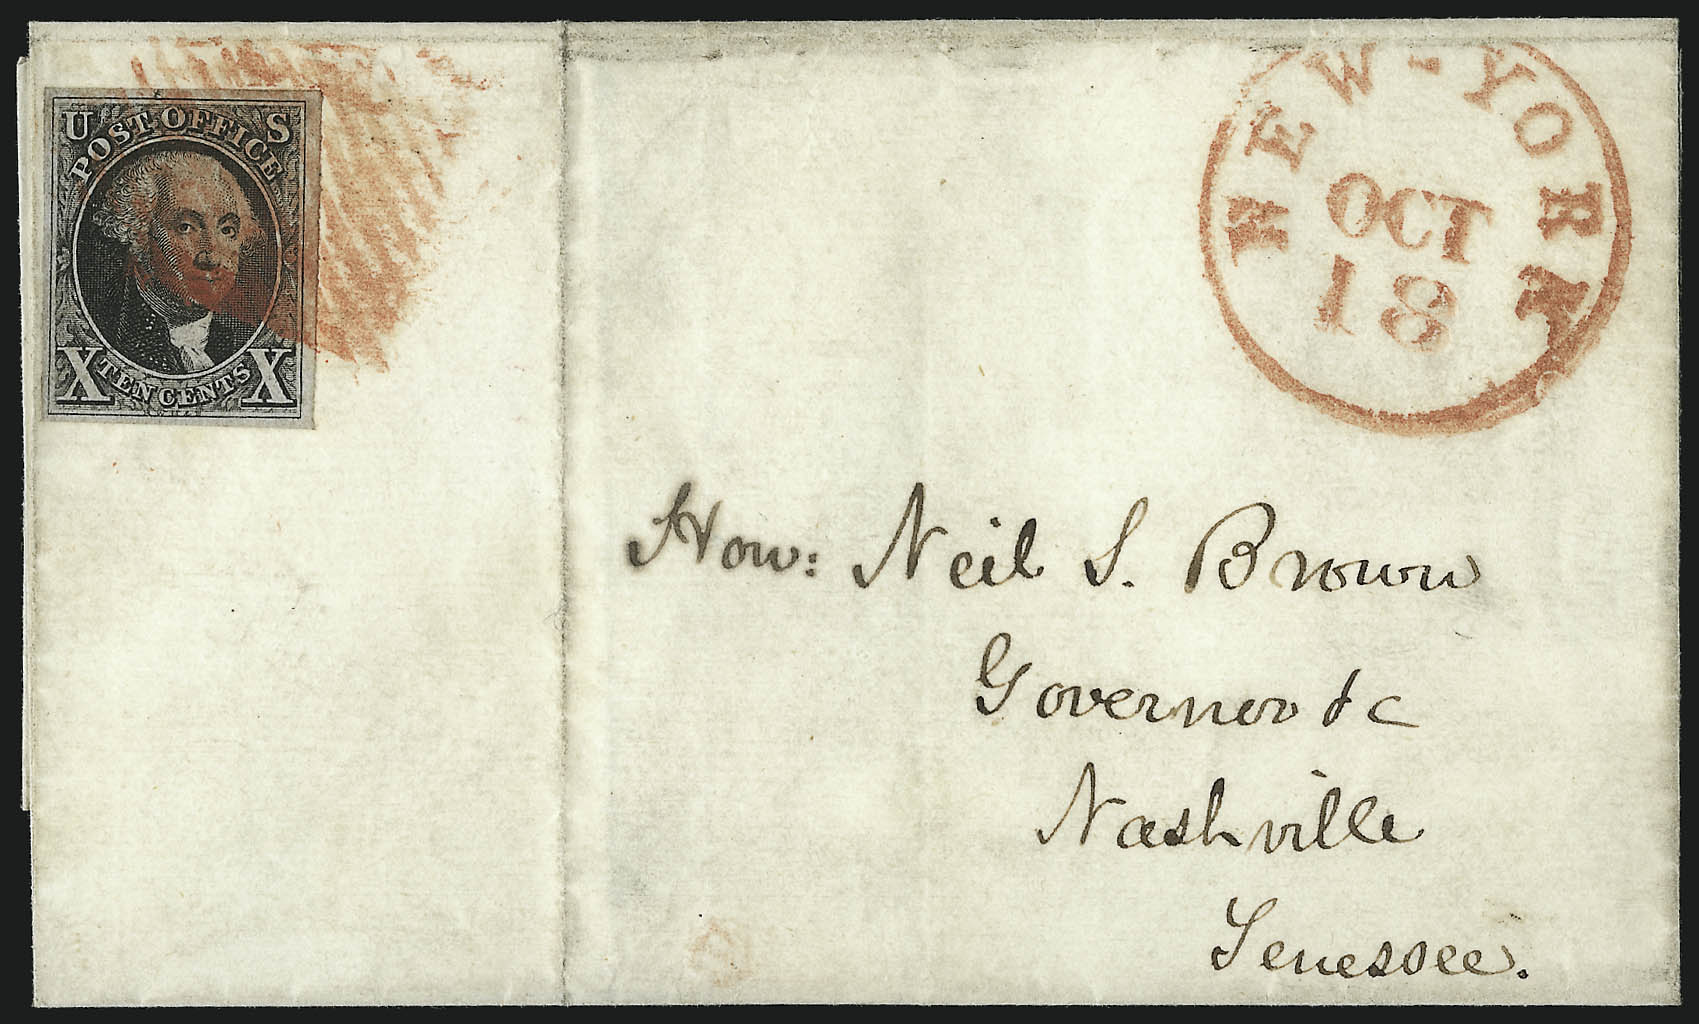 U S
POST OFFICE
X TEN CENTS X
NEW-YORK
OCT
18
Hon: Neil S. Brown
Governor &c
Nashville
Tenessee.